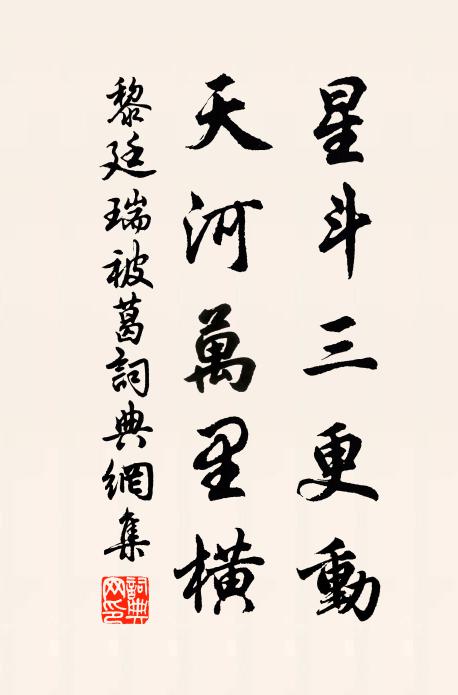 星斗三更動
天河萬里橫
黎廷瑞被葛詞典網集
詞典網印